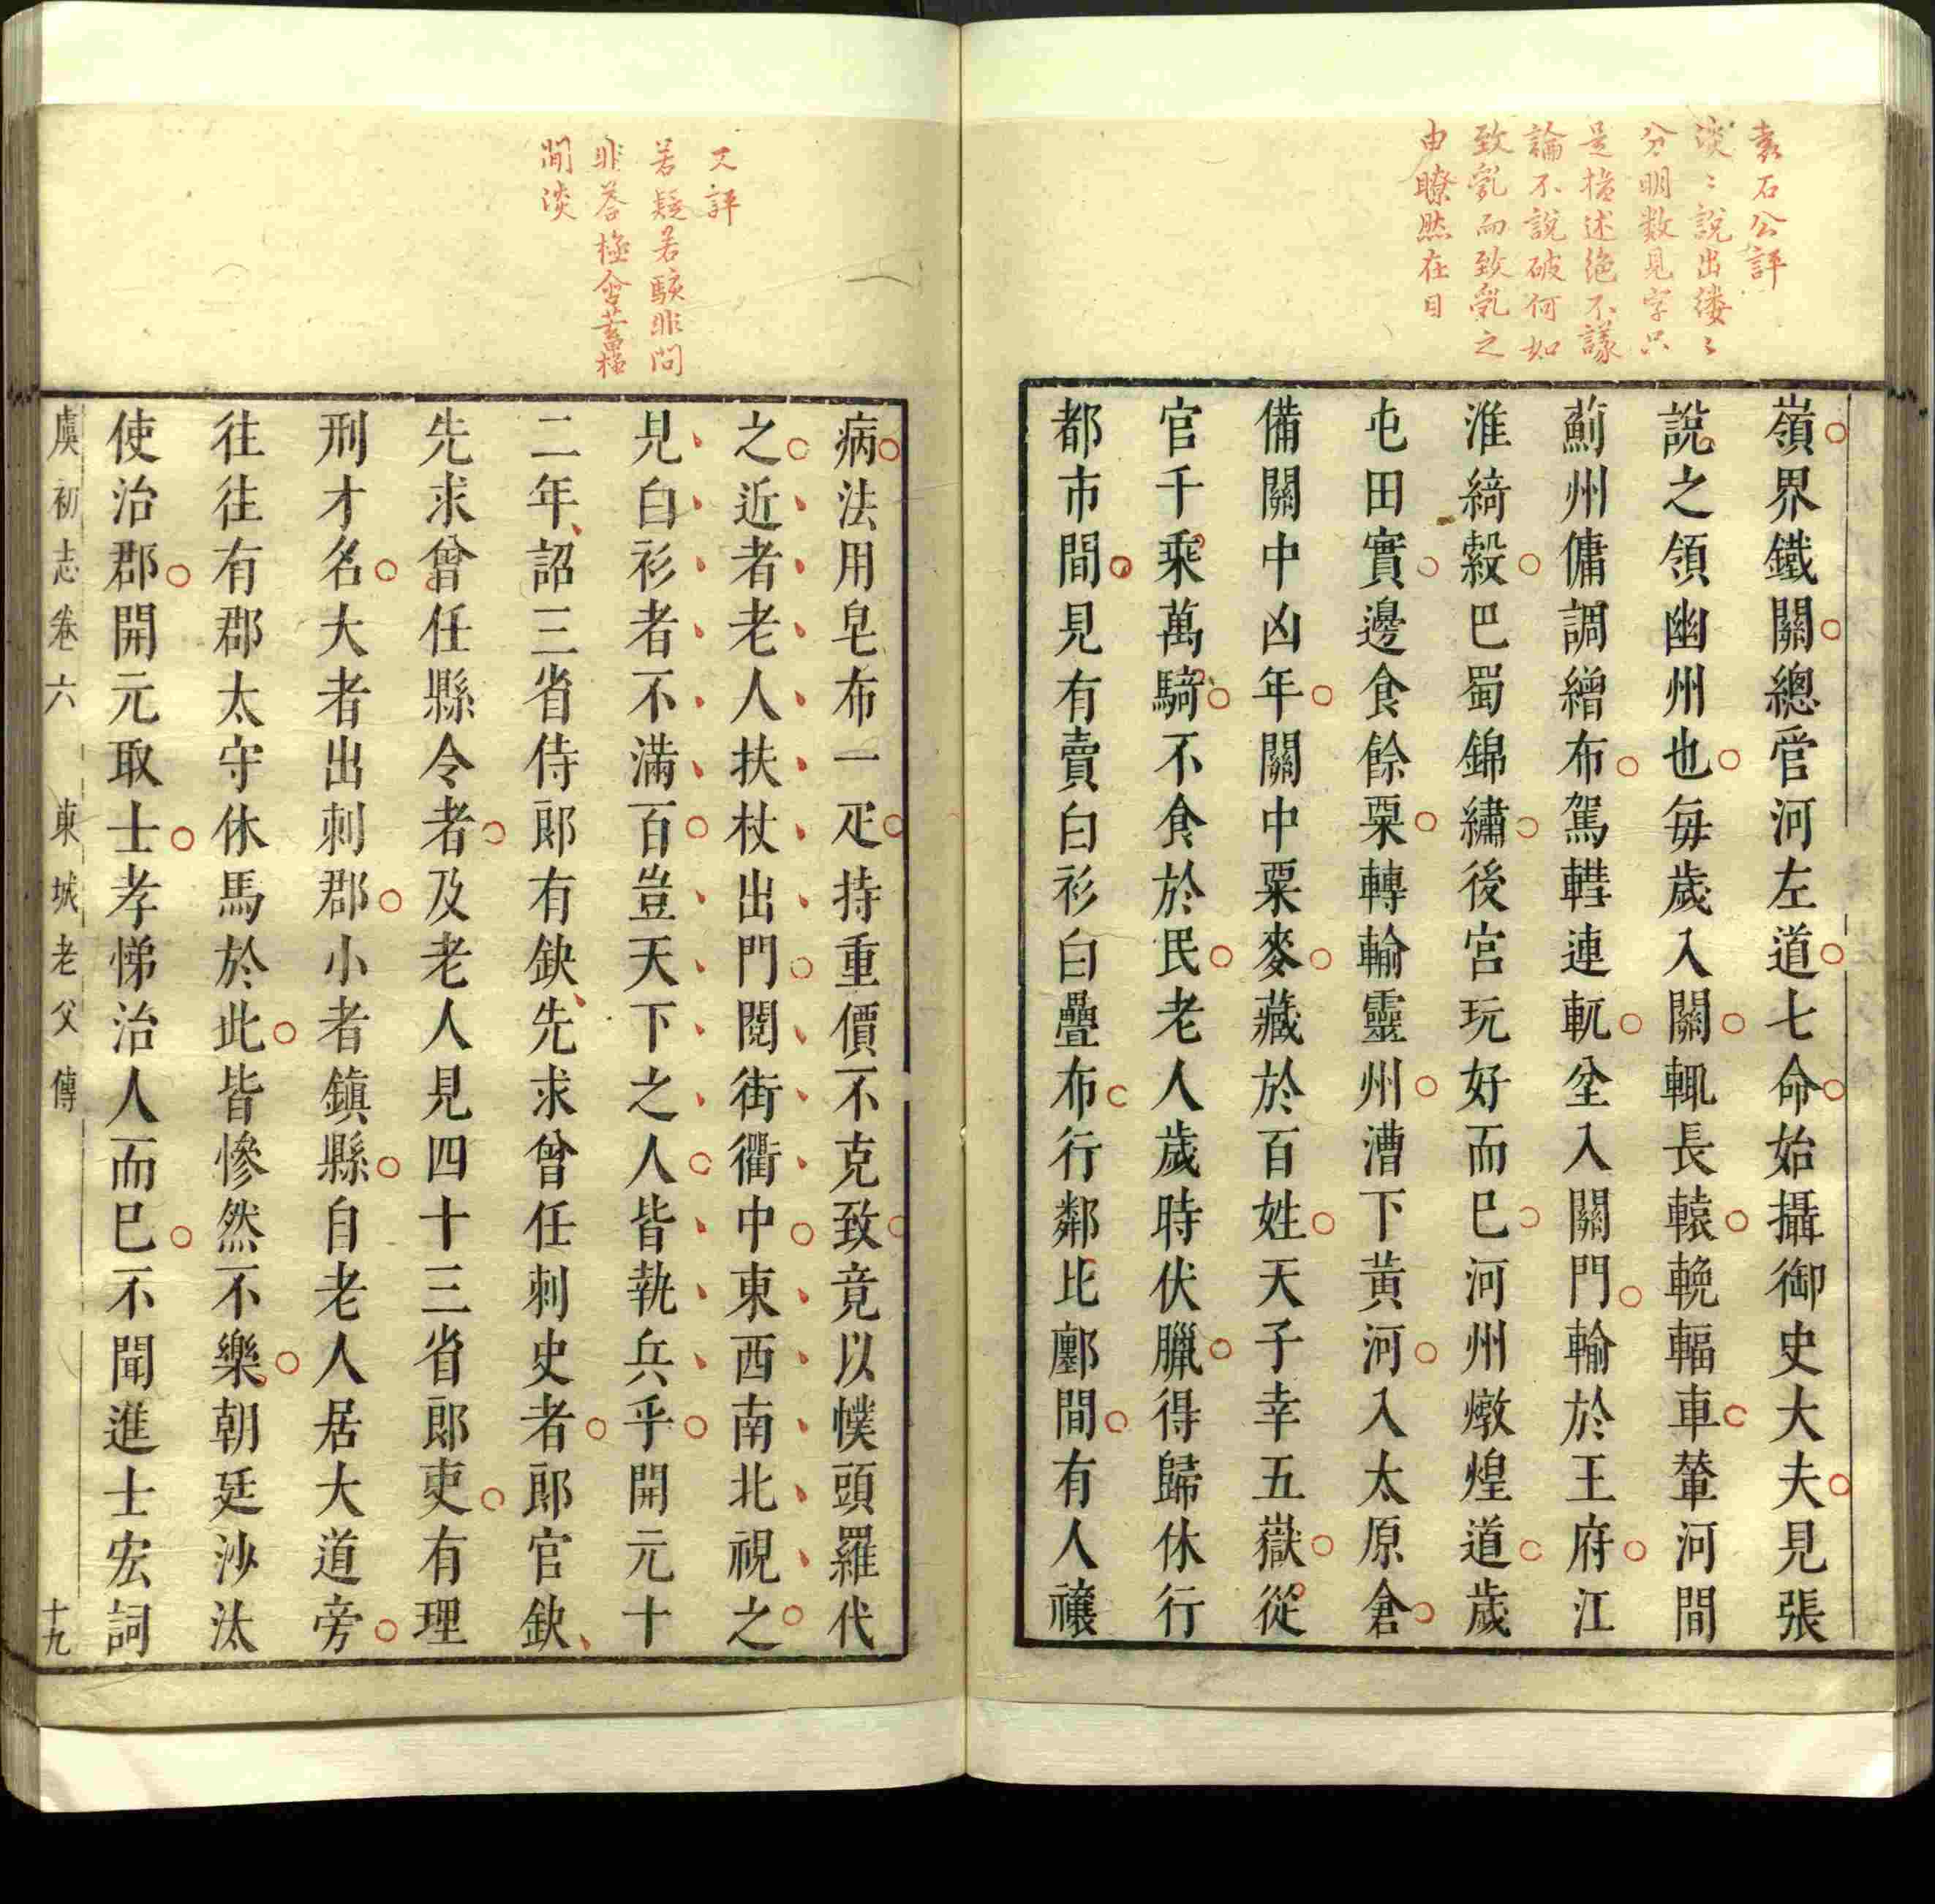 袁石公評
淡〻說出縷〻
分明數見字只
是描述絶不議
論不說破何如
致亂而致亂之
由瞭然在目
嶺界鐵關總管河左道七命始攝御史大夫見張
說之領幽州也每歲入關輒長轅輓輻車輦河間
薊州傭調繒布駕轊連軏坌入關門輸於王府江
淮綺縠巴蜀錦繡後宮玩好而巳河州燉煌道歲
屯田實邊食餘粟轉輸靈州漕下黃河入太原倉
備關中凶年關中粟麥藏於百姓天子幸五嶽從
官千乘萬騎不食於民老人歲時伏臘得歸休行
都市間見有賣白衫白疊布行鄰比鄽間有人禳
又評
若疑若駭非問
非答極含蓄極
閒淡
病法用皂布一疋持重價不克致竟以幞頭羅代
之近者老人扶杖出門閱街衢中東西南北視之
見白衫者不滿百豈天下之人皆執兵乎開元十
二年詔三省侍郎有缺先求曾任刺史者郎官缺
先求曾任縣令者及老人見四十三省郎吏有理
刑才名大者出刺郡小者鎮縣自老人居大道旁
往往有郡太守休馬於此皆慘然不樂朝廷沙汰
使治郡開元取士孝悌治人而巳不聞進士宏詞
虞初志卷六 東城老父傳 十九